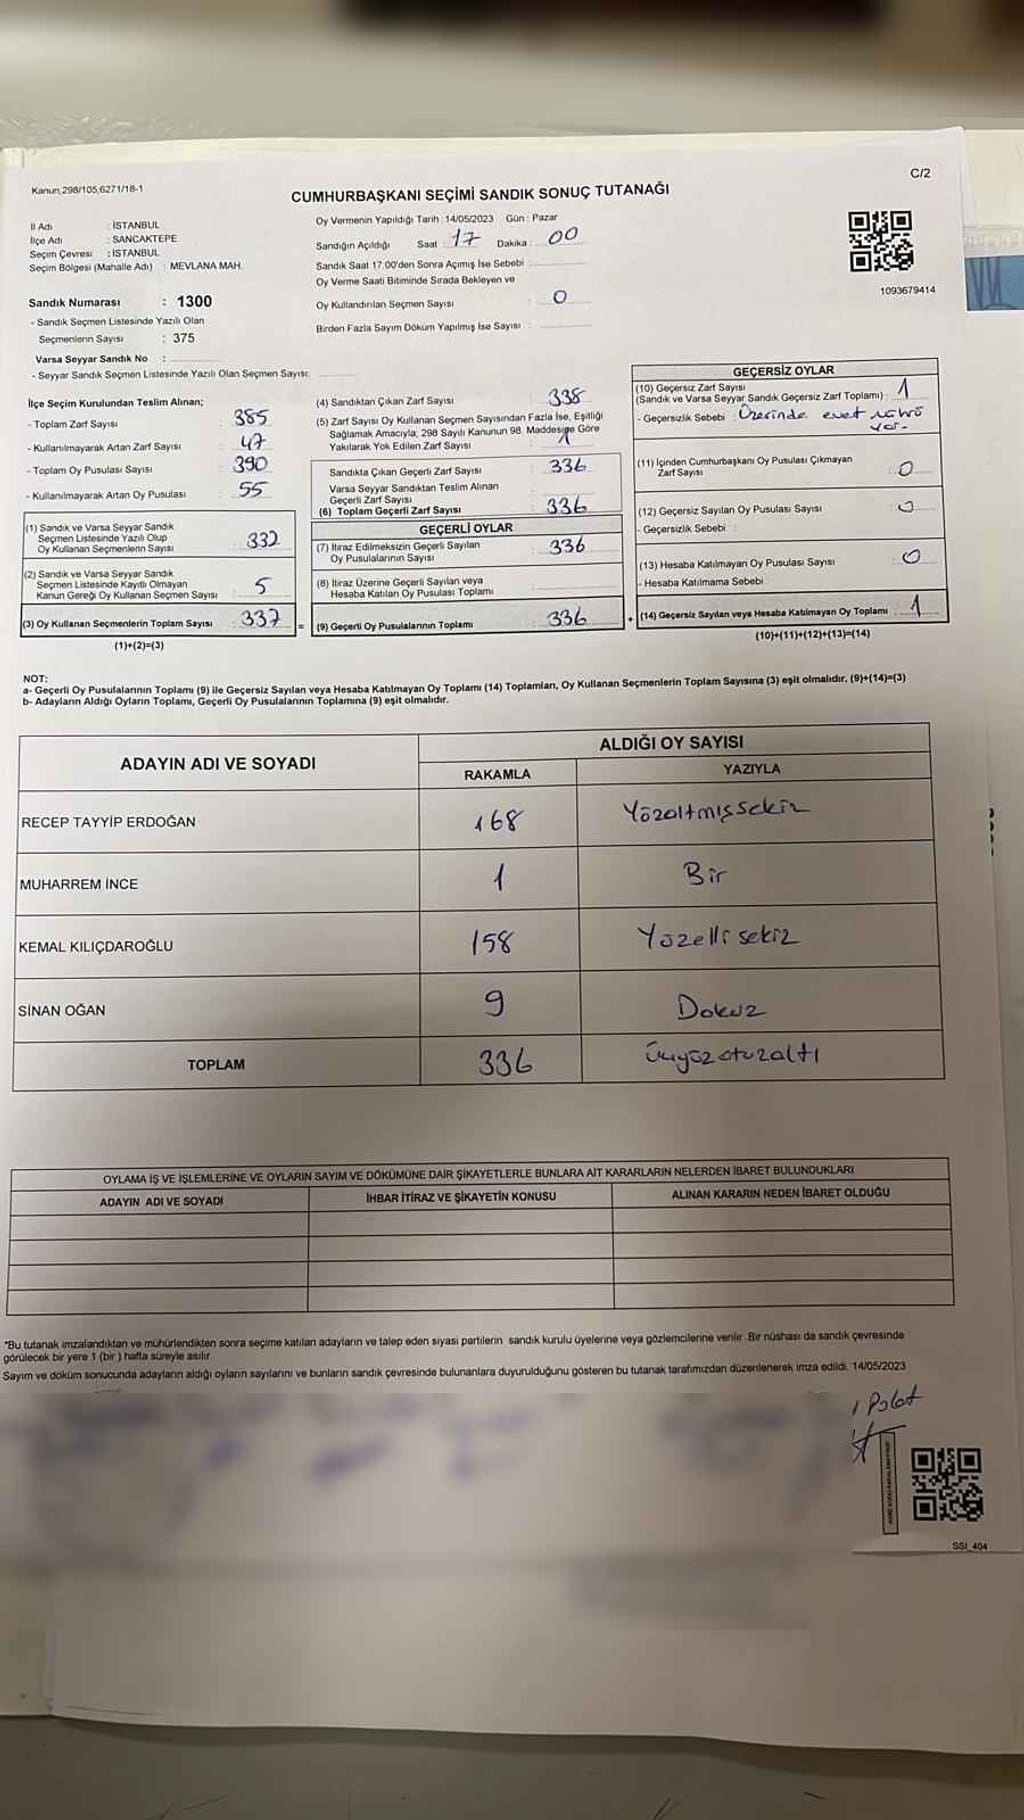 Kanun,298/105,6271/18-1
C/2
CUMHURBAŞKANI SEÇİMİ SANDIK SONUÇ TUTANAĞI
İl Adı : İSTANBUL
İlçe Adı : SANCAKTEPE
Seçim Çevresi : İSTANBUL
Seçim Bölgesi (Mahalle Adı) : MEVLANA MAH.
Sandık Numarası : 1300
- Sandık Seçmen Listesinde Yazılı Olan
Seçmenlerin Sayısı : 375
Varsa Seyyar Sandık No :
- Seyyar Sandık Seçmen Listesinde Yazılı Olan Seçmen Sayısı:
Oy Vermenin Yapıldığı Tarih :14/05/2023 Gün : Pazar
Sandığın Açıldığı Saat : 17 Dakika : 00
Sandık Saat 17.00'den Sonra Açımış İse Sebebi :
Oy Verme Saati Bitiminde Sırada Bekleyen ve
Oy Kullandırılan Seçmen Sayısı : 0
Birden Fazla Sayım Döküm Yapılmış İse Sayısı :
1093679414
İlçe Seçim Kurulundan Teslim Alınan;
- Toplam Zarf Sayısı : 385
- Kullanılmayarak Artan Zarf Sayısı : 47
- Toplam Oy Pusulası Sayısı : 390
- Kullanılmayarak Artan Oy Pusulası : 55
(1) Sandık ve Varsa Seyyar Sandık
Seçmen Listesinde Yazılı Olup
Oy Kullanan Seçmenlerin Sayısı : 332
(2) Sandık ve Varsa Seyyar Sandık
Seçmen Listesinde Kayıtlı Olmayan
Kanun Gereği Oy Kullanan Seçmen Sayısı : 5
(3) Oy Kullanan Seçmenlerin Toplam Sayısı : 337
(1)+(2)=(3)
=
(4) Sandıktan Çıkan Zarf Sayısı : 338
(5) Zarf Sayısı Oy Kullanan Seçmen Sayısından Fazla İse, Eşitliği
Sağlamak Amacıyla; 298 Sayılı Kanunun 98. Maddesine Göre
Yakılarak Yok Edilen Zarf Sayısı : 1
Sandıkta Çıkan Geçerli Zarf Sayısı : 336
Varsa Seyyar Sandıktan Teslim Alınan
Geçerli Zarf Sayısı :
(6) Toplam Geçerli Zarf Sayısı : 336
GEÇERLİ OYLAR
(7) İtiraz Edilmeksizin Geçerli Sayılan
Oy Pusulalarının Sayısı : 336
(8) İtiraz Üzerine Geçerli Sayılan veya
Hesaba Katılan Oy Pusulası Toplamı :
(9) Geçerli Oy Pusulalarının Toplamı : 336
+
GEÇERSİZ OYLAR
(10) Geçersiz Zarf Sayısı
(Sandık ve Varsa Seyyar Sandık Geçersiz Zarf Toplamı) : 1
- Geçersizlik Sebebi : Üzerinde evet mührü
var.
(11) İçinden Cumhurbaşkanı Oy Pusulası Çıkmayan
Zarf Sayısı : 0
(12) Geçersiz Sayılan Oy Pusulası Sayısı : 0
- Geçersizlik Sebebi :
(13) Hesaba Katılmayan Oy Pusulası Sayısı : 0
- Hesaba Katılmama Sebebi
(14) Geçersiz Sayılan veya Hesaba Katılmayan Oy Toplamı : 1
(10)+(11)+(12)+(13)=(14)
NOT:
a- Geçerli Oy Pusulalarının Toplamı (9) ile Geçersiz Sayılan veya Hesaba Katılmayan Oy Toplamı (14) Toplamları, Oy Kullanan Seçmenlerin Toplam Sayısına (3) eşit olmalıdır. (9)+(14)=(3)
b- Adayların Aldığı Oyların Toplamı, Geçerli Oy Pusulalarının Toplamına (9) eşit olmalıdır.
ADAYIN ADI VE SOYADI ALDIĞI OY SAYISI
RAKAMLA YAZIYLA
RECEP TAYYİP ERDOĞAN 168 Yüzaltmışsekiz
MUHARREM İNCE 1 Bir
KEMAL KILIÇDAROĞLU 158 Yüzelli sekiz
SİNAN OĞAN 9 Dokuz
TOPLAM 336 Üçyüzotuzaltı
OYLAMA İŞ VE İŞLEMLERİNE VE OYLARIN SAYIM VE DÖKÜMÜNE DAİR ŞİKAYETLERLE BUNLARA AİT KARARLARIN NELERDEN İBARET BULUNDUKLARI
ADAYIN ADI VE SOYADI İHBAR İTİRAZ VE ŞİKAYETİN KONUSU ALINAN KARARIN NEDEN İBARET OLDUĞU
*Bu tutanak imzalandıktan ve mühürlendikten sonra seçime katılan adayların ve talep eden siyasi partilerin sandık kurulu üyelerine veya gözlemcilerine verilir. Bir nüshası da sandık çevresinde
görülecek bir yere 1 (bir ) hafta süreyle asılır.
Sayım ve döküm sonucunda adayların aldığı oyların sayılarını ve bunların sandık çevresinde bulunanlara duyurulduğunu gösteren bu tutanak tarafımızdan düzenlenerek imza edildi. 14/05/2023
Polat
SSI_404